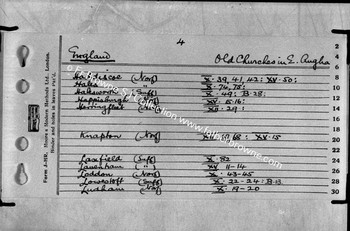 4
England Old Churches in E. Anglia
Haddiscoe (Norf) X. 39, 41, 42: XV. 50:
Hales X. 74, 75:
Halesworth (Suff) X. 49; B. 28:
Happisburgh (Norf) XV. 15-16:
XII. 29.
Knapton (Norf) 68: XV. 15
Laxfield (Suff) X. 82
Lavenham ( " ) XV 11-14
Loddon (Norf) X. 43-45
Lowestoft (Suff) X. 22-24: B. 13
Ludham (Norf) X. 19-20
Form A-MR. Moore's Modern Methods Ltd., London.
2
4
6
8
10
12
14
16
18
20
22
24
26
28
30